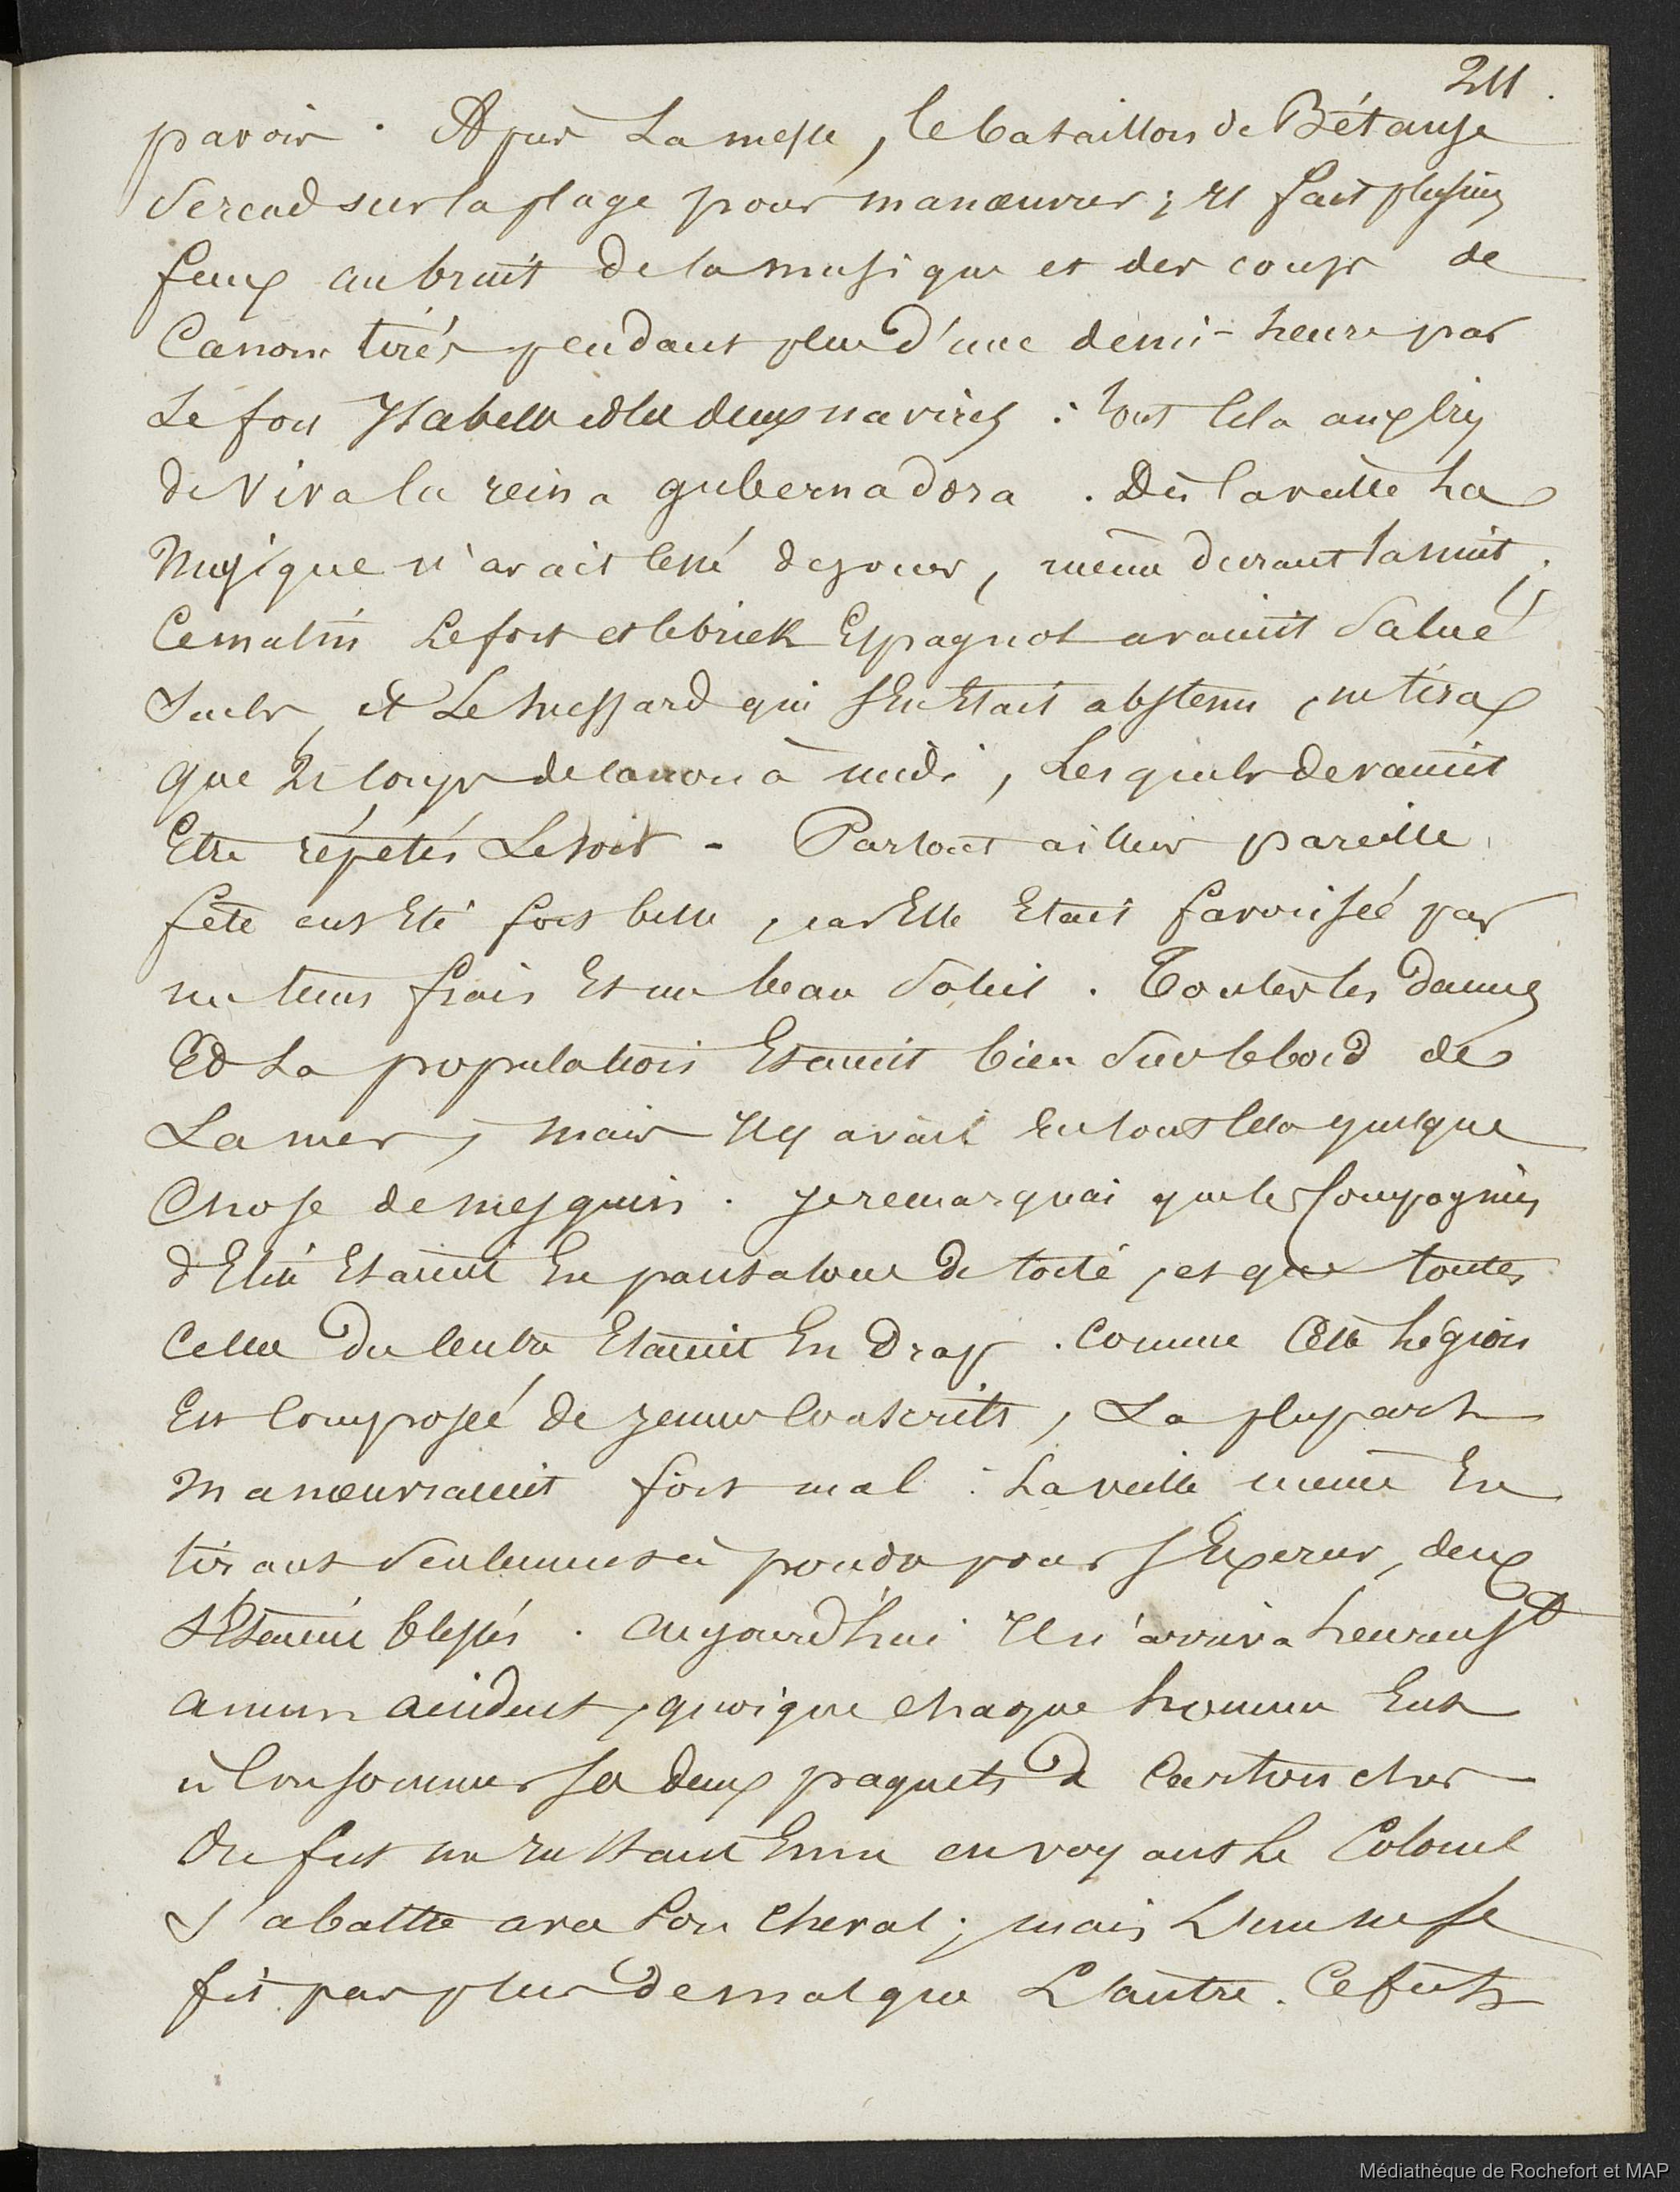 211.
pavois. Après La messe, le bataillon de Bétanse
se rend sur la plage pour manœuvrer ; il fait plusieurs
feux au bruit de la musique et des coups de
Canon tirés pendant plus d'une demi-heure par
Le fort Isabelle et les deux navires : tout cela aux cris
de Viva la reina gubernadora. Dès la veille La
Musique n'avait cessé de jouer, même durant la nuit.
Ce matin Le fort et le brick Espagnol avaient Salué
Seuls, et Le hussard qui s'en Etait abstenu, ne tira
que 21 coups de canon à midi, Lesquels devaient
Etre répétés Le soir - Partout ailleurs pareille
fête eut Eté fort belle, car Elle Etait favorisée par
un tems frais Et un beau Soleil. Toutes les dames
Et La population Etaient bien sur le bord de
La mer, mais Il y avait En tout cela quelque
Chose de mesquin. Je remarquai que les Compagnies
d'Elite Etaient En pantalons de toile, et que toutes
Celles du Centre Etaient En Drap. Comme Cette Légion
Est Composée de jeunes Conscrits, La plupart
manœuvraient fort mal. La veille même En
tirant Seulement à poudre pour s'Exercer, deux
s'Etaient blessés. Aujourd'hui Il n'arriva heureusᵗ
aucun accident, quoique chaque homme Eut
à Consommer ses deux paquets de Cartouches
On fut un instant Emu en voyant Le Colonel
s'abattre avec Son Cheval ; mais L'un ne se
fit pas plus de mal que L'autre. Ce fut
Médiathèque de Rochefort et MAP